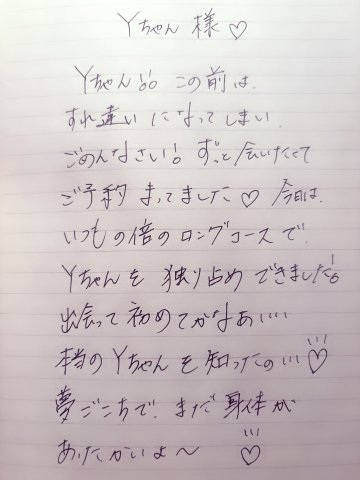 Yちゃん 様♡
Yちゃん!! この前は、
すれ違いになってしまい、
ごめんなさい!! ずっと会いたくて
ご予約まってました♡ 今日は、
いつもの倍のロングコースで、
Yちゃんを独り占めできました!!
出会って初めてかなぁ‥‥
本当のYちゃんを知ったの…♡
夢ごこちで、まだ身体が
あったかいよ〜 ♡